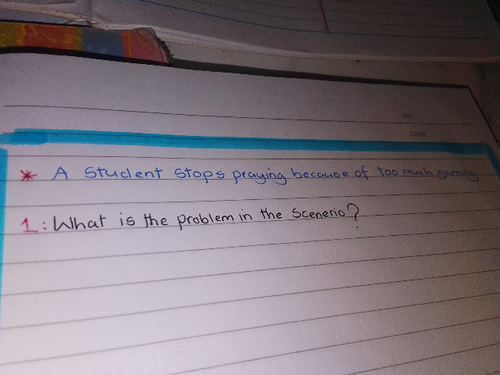 * A Student Stops praying because of too much gaming
1: What is the problem in the Scenerio?